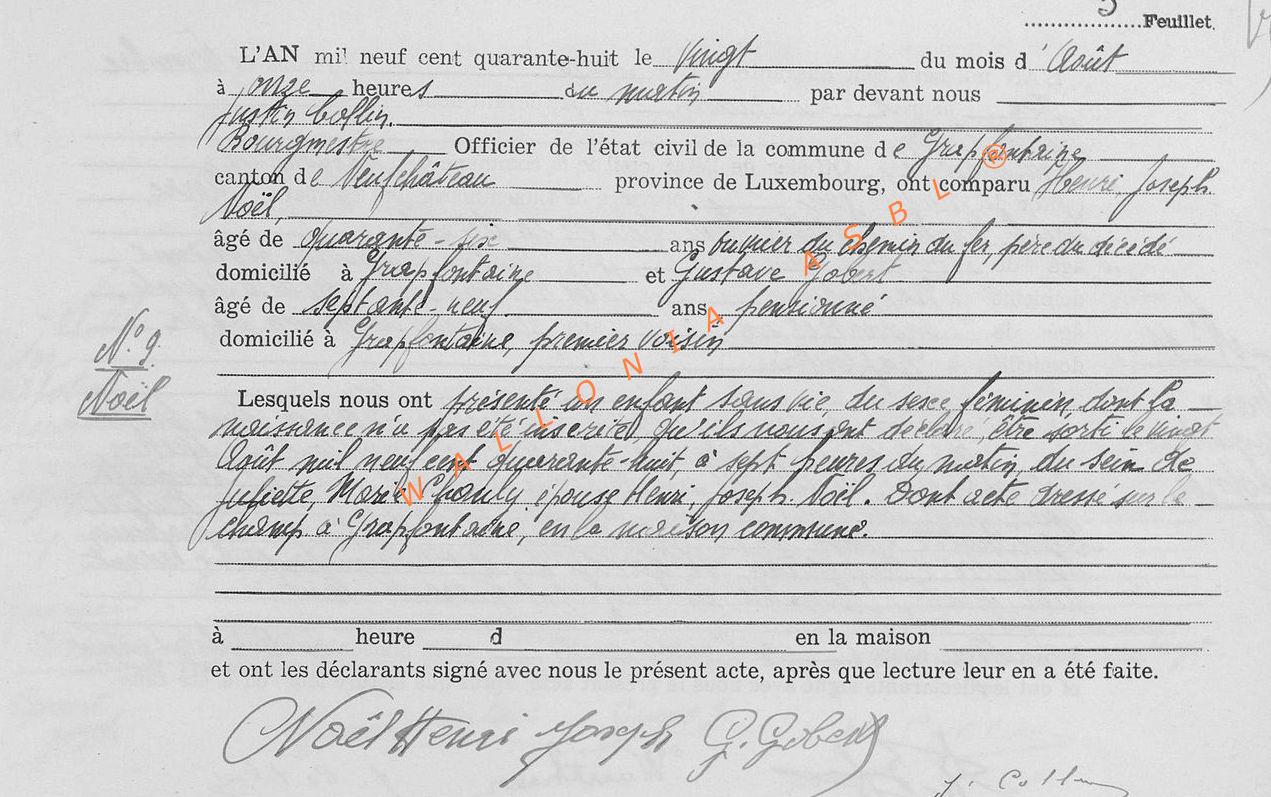 5
Feuillet.
L'AN mil neuf cent quarante-huit le vingt du mois d'Août
à onze heures du matin par devant nous
Justin Collin.
Bourgmestre Officier de l'état civil de la commune de Grapfontaine
canton de Neufchâteau province de Luxembourg, ont comparu Henri, Joseph
Noël,
âgé de quarante-six ans ouvrier du chemin du fer, père du décédé
domicilié à Grapfontaine et Gustave Gobert
âgé de septante-neuf ans pensionné
domicilié à Grapfontaine, premier voisin
N° 9.
Noël
Lesquels nous ont présenté un enfant sans vie, du sexe féminin, dont la
naissance n'a pas été inscrite, qu'ils nous ont déclaré être sorti le vingt
Août mil neuf cent quarante-huit, à sept heures du matin, du sein de
Juliette, Marie épouse Henri, Joseph Noël. Dont acte dressé sur le
champ à Grapfontaine, en la maison commune.
à heure d en la maison
et ont les déclarants signé avec nous le présent acte, après que lecture leur en a été faite.
Noël Henri Joseph G. Gobert
J. Collin
WALLONIA ASBL ®